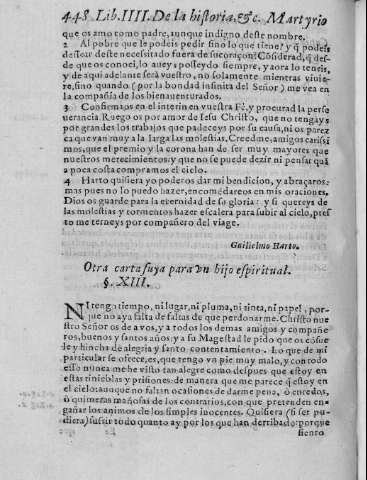 448 Lib.IIII. De la historia.&c. Martyrio
que os amo como padre, aunque indigno deste nombre.
2 Al pobre que le podeis pedir sino lo que tiene? y q̃ podeis
desear deste necesitado fuera de su coraçon? Cõsiderad, q̃ des-
de que os conoci, lo auey; posseydo siempre, y aora lo teneis,
y de aqui adelante será vuestro, no solamente mientras viuie-
re, sino quando (por la bondad infinita del Señor) me vea en
la compañia de los bienauenturados.
3 Confiemios en el interin en vuestra Fè, y procurad la perse
uerancia. Ruego os por amor de Iesu Christo, que no tengays
por grandes los trabajos que padeceys por su causa, ni os parez
ca que van muy a la larga las molestias. Creedme, amigos carissi
mos, que el premio y la corona han de ser muy mayores que
nuestros merecimientos: y que no se puede dezir ni pensar quã
a poca costa compramos el cielo.
4 Harto quisiera yo poderos dar mi bendicion, y abraçaros:
mas pues no lo puedo hazer, encomēdareos en mis oraciones.
Dios os guarde para la eternidad de su gloria: y si quereys de
las molestias y tormentos hazer escalera para subir al cielo, pres
to me terneys por compañero del viage.
Guilielmo Harto.
Otra carta suya para vn hijo espiritual.
§. XIII.
NI tengo tiempo, ni lugar, ni pluma, ni tinta, ni papel, por-
que no aya falta de faltas de que perdonarme. Christo nue
stro Señor os de a vos, y a todos los demas amigos y compañe
ros, buenos y santos años: y a su Magestad le pido que os cõsue
de y hincha de alegria y santo contentamiento. Lo que de mi
particular se ofrece, es, que tengo vn pie muy malo, y con todo
esso nunca me he visto tan alegre como despues que estoy en
estas tinieblas y prisiones: de manera que me parece q̃ estoy en
el cielo: aunque no faltan ocasiones de darme pena, ò enredos,
ò quimeras mañosas de los contrarios, con que pretenden en-
gañar los animos de los simples inocentes. Quisiera (si ser pu-
diera) sufrir todo quanto ay por los que han derribado: porque
siento